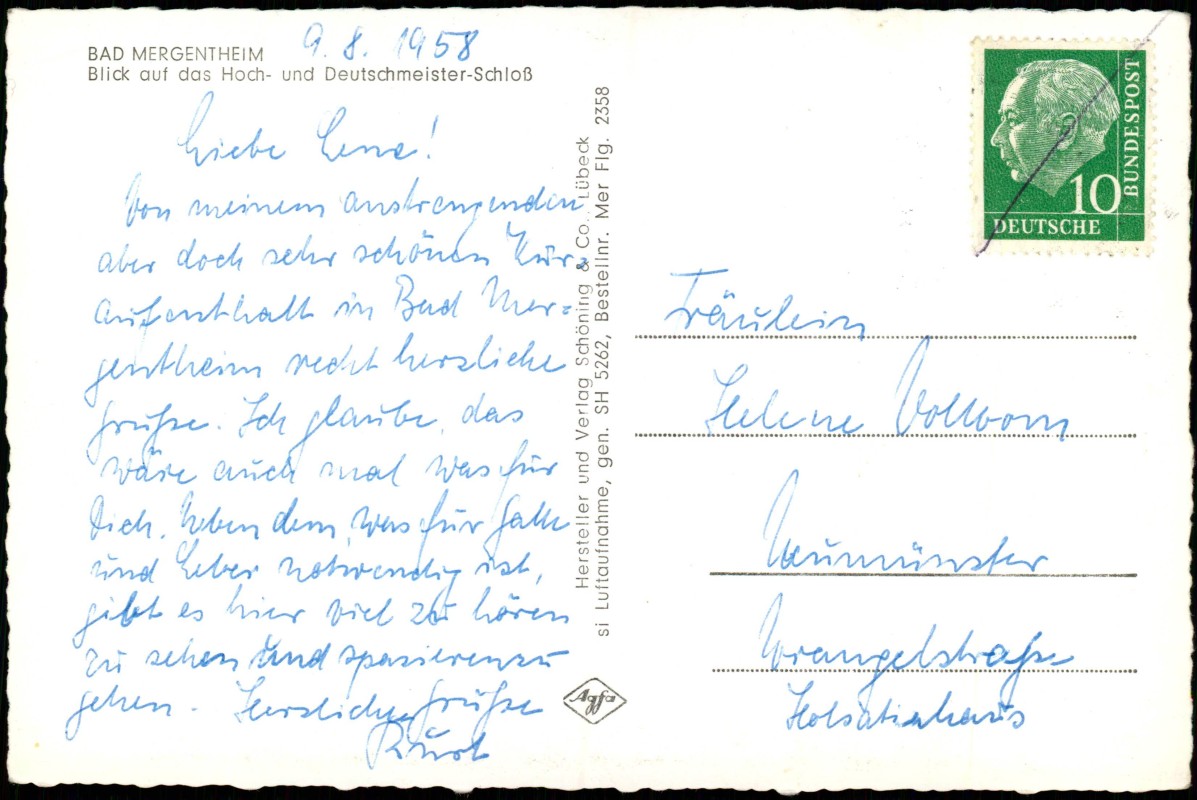 BAD MERGENTHEIM
Blick auf das Hoch- und Deutschmeister-Schloß
9. 8. 1958
Liebe Lene!
Von meinem anstrengenden
aber doch sehr schönen Kur-
aufenthalt in Bad Mer=
gentheim recht herzliche
Grüße. Ich glaube, das
wäre auch mal was für
Dich. Neben dem, was für Galle
und Leber notwendig ist,
gibt es hier viel zu hören
zu sehen und spazierenzu
gehen. Herzliche Grüße
Kurt
Hersteller und Verlag Schöning & Co., Lübeck
si Luftaufnahme, gen. SH 5262, Bestellnr. Mer Flg. 2358
Agfa
10
DEUTSCHE
BUNDESPOST
Fräulein
Helene
Neumünster
Wrangelstraße
Holsatenhaus